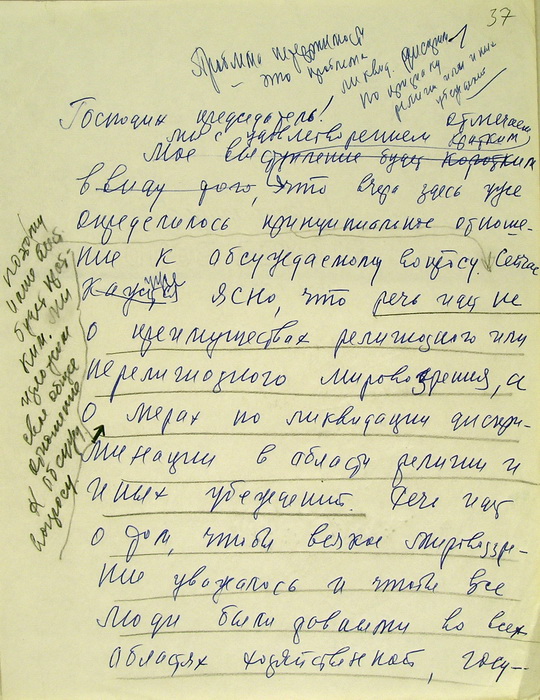 37
Проблема
– это проблема
ликвид. дискрим.
по признаку
религии или иных
убеждений
Господин председатель!
мы с удовлетворением отмечаем
Мое выступление будет кратким коротким
ввиду того, что вчера здесь уже
определилось принципиальное отноше-
ние к обсуждаемому вопросу. Сейчас
уже
ясно, что речь идет не
о преимуществах религиозного или
нерелигиозного мировоззрения, а
о мерах по ликвидации дискри-
минации в области религии и
иных убеждений. Речь идет
о том, чтобы всякое мировоззре-
ние уважалось и чтобы все
люди были равными во всех
областях хозяйственной, госу-
поэтому
наше выст.
будет крат-
ким. Мы
изложим
свое общее
отношение
к обсужд.
вопросу